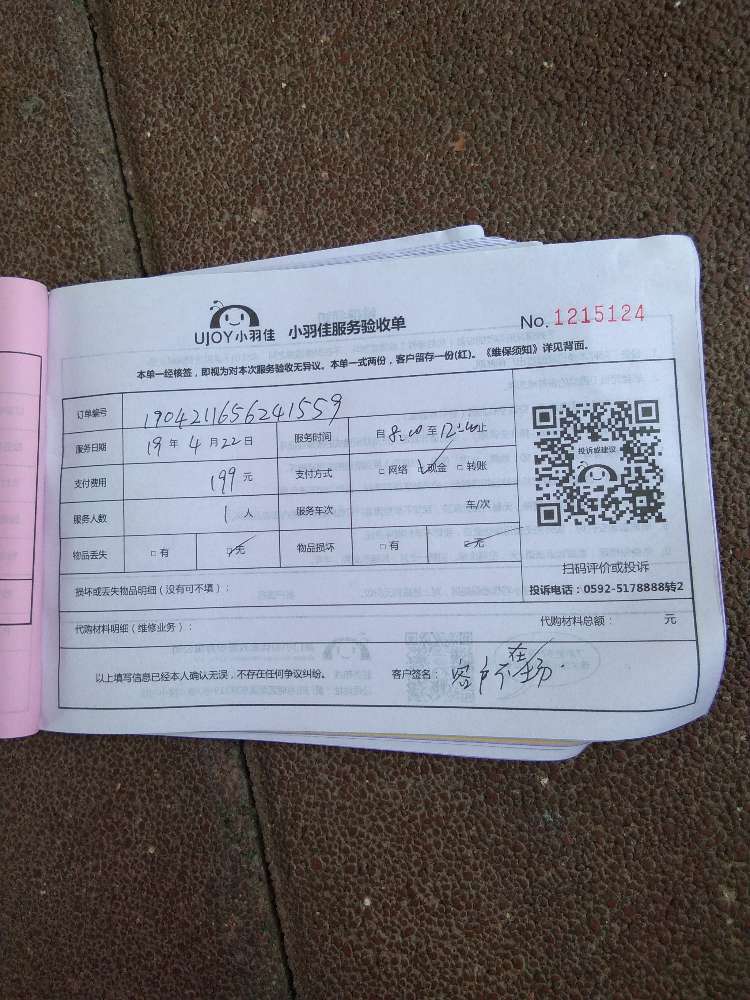 UJOY小羽佳 小羽佳服务验收单 No. 1215124
本单一经核签，即视为对本次服务验收无异议。本单一式两份，客户留存一份(红)。《维保须知》详见背面。
订单编号 1904211656241559
服务日期 19 年 4 月 22 日 服务时间 自 8:00 至 12:00 止
支付费用 199 元 支付方式 □ 网络 ☑ 现金 □ 转账
服务人数 1 人 服务车次 车/次
物品丢失 □ 有 ☑ 无 物品损坏 □ 有 ☑ 无
投诉或建议
扫码评价或投诉
投诉电话：0592-5178888转2
损坏或丢失物品明细（没有可不填）：
代购材料明细（维修业务）： 代购材料总额： 元
以上填写信息已经本人确认无误，不存在任何争议纠纷。 客户签名： 客户不在场.